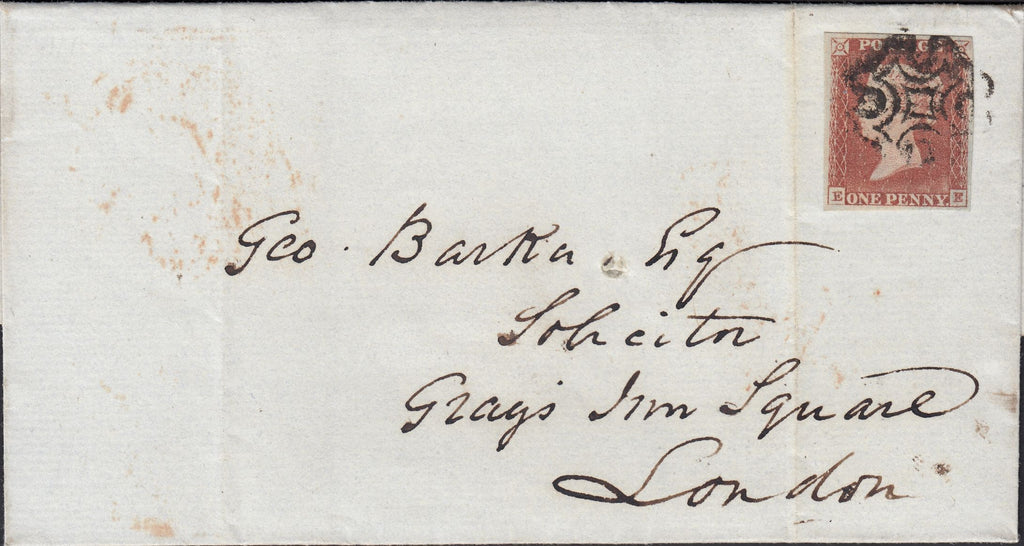 POSTAGE
E ONE PENNY. E
Geo. Barker Esq
Solicitor
Grays Inn Square
London